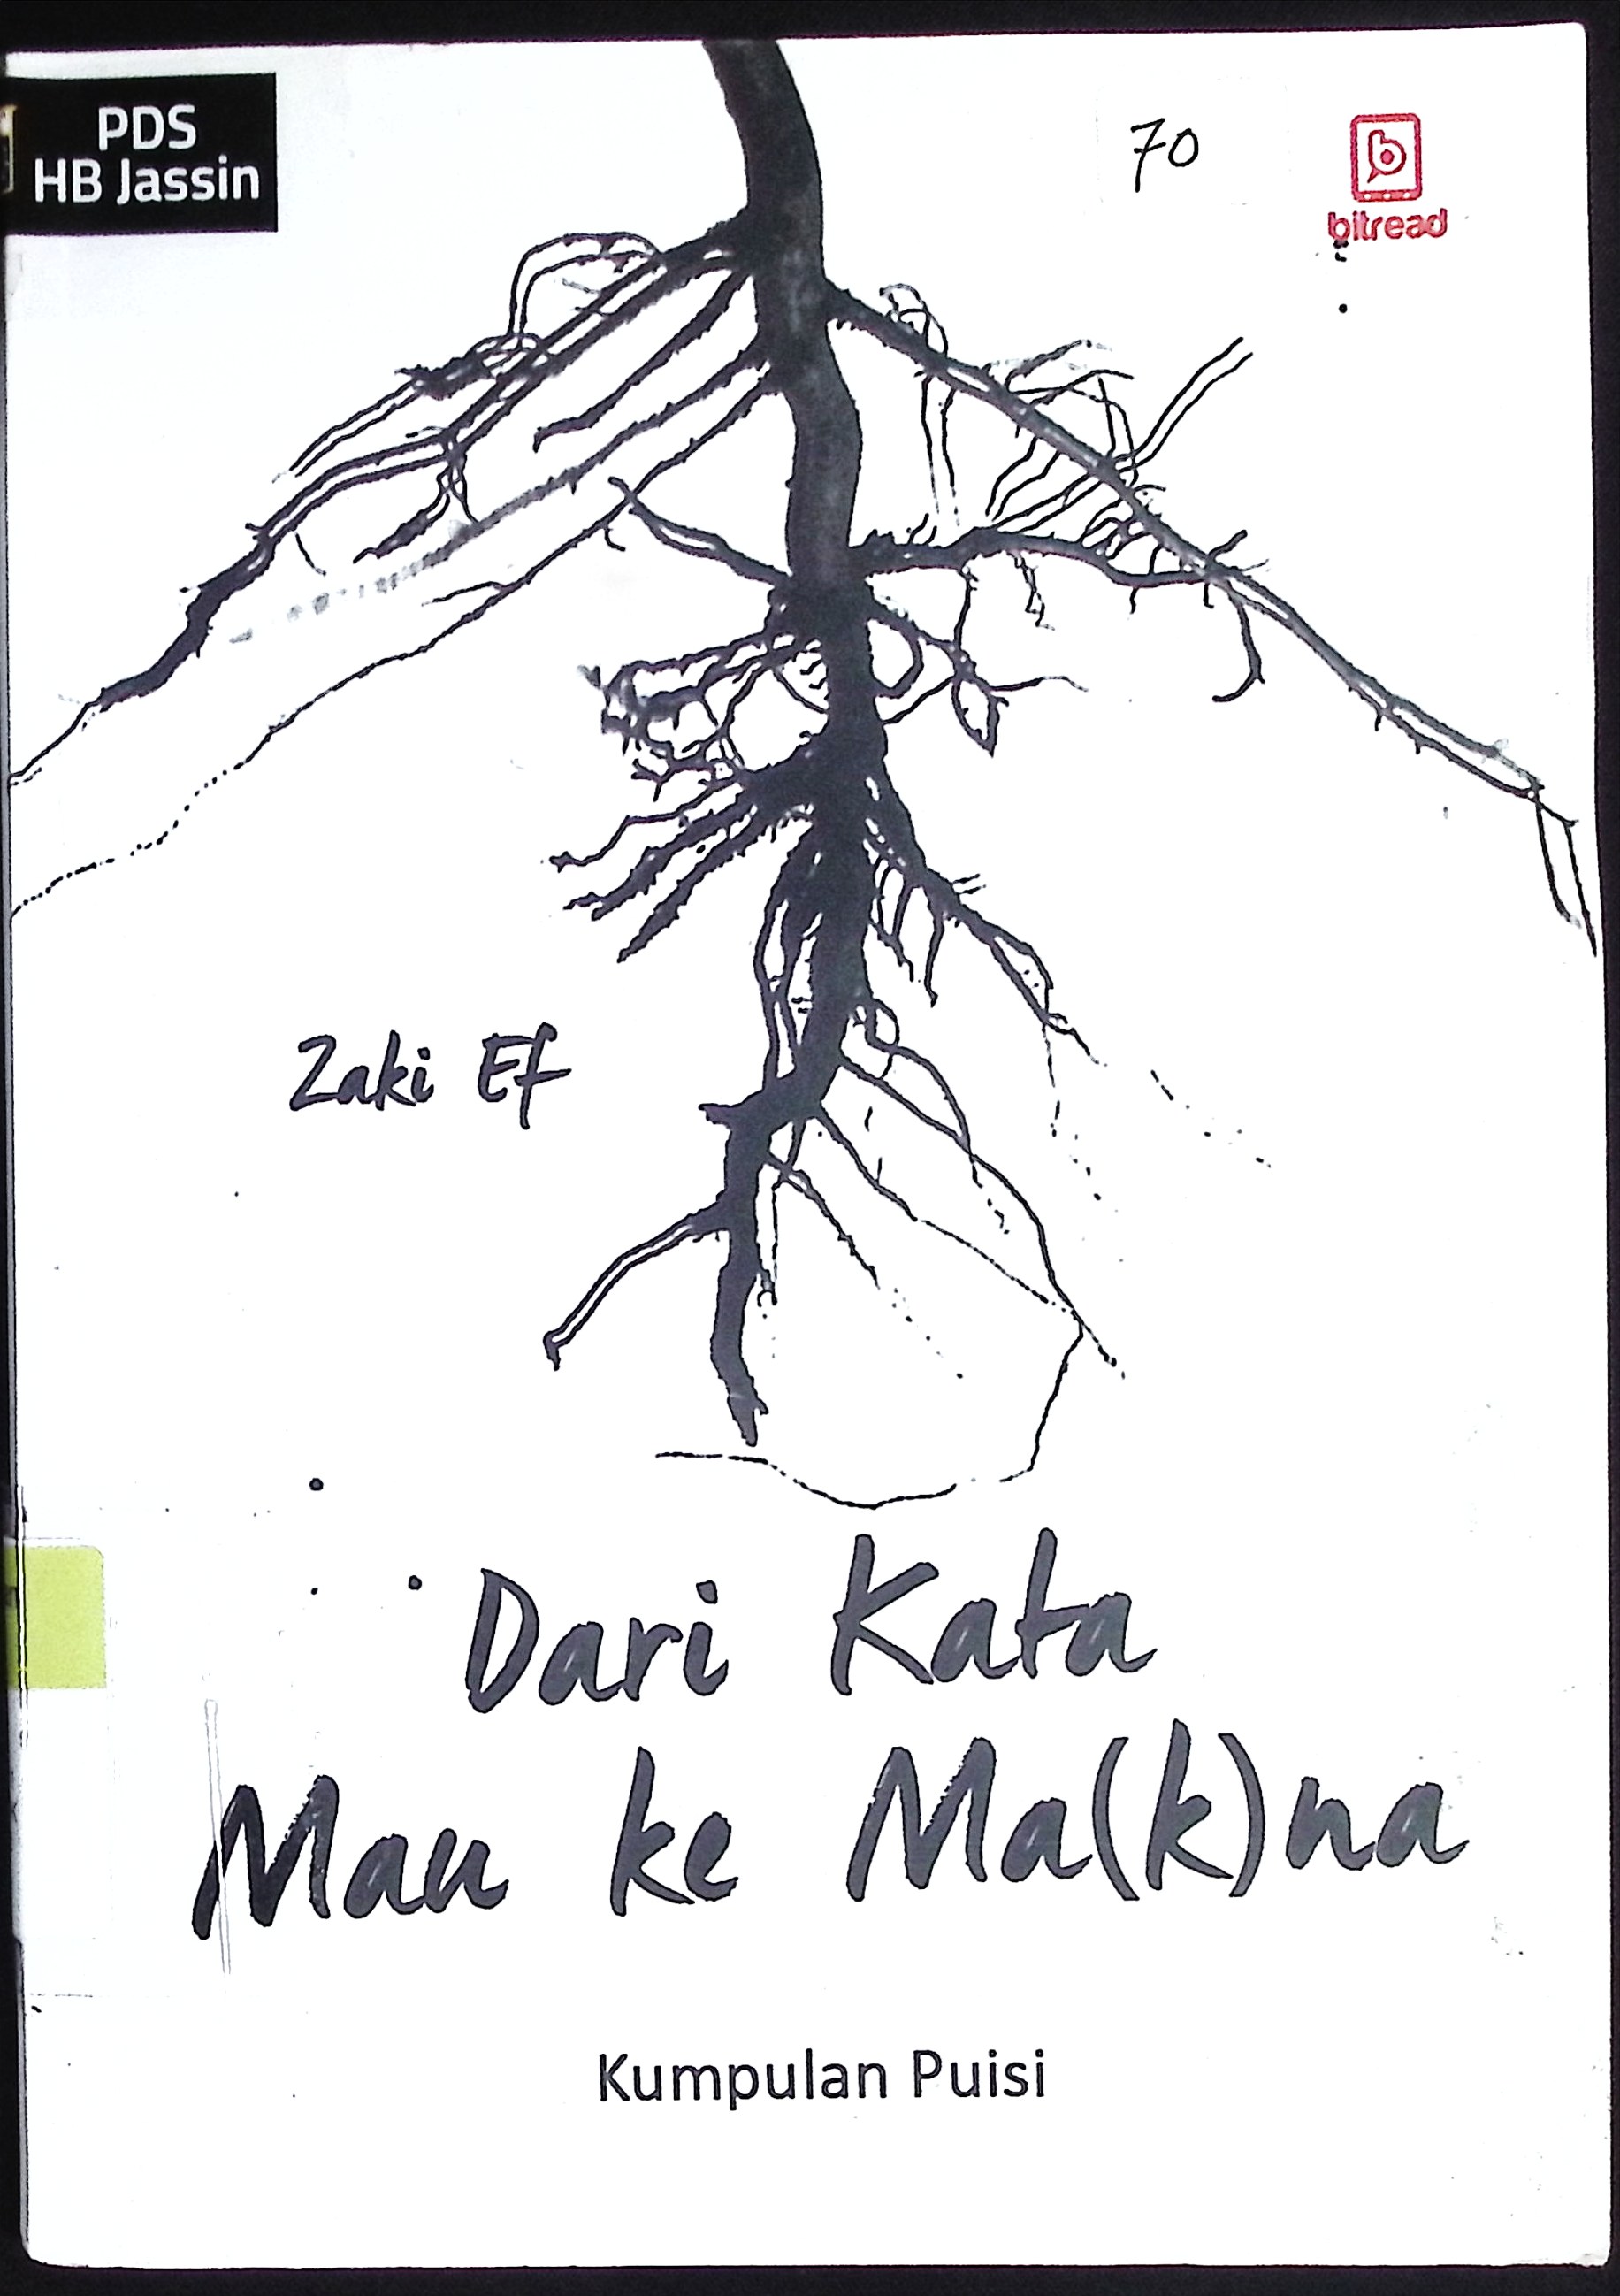 PDS
HB Jassin
70
bitread
Zaki Ef
Dari Kata
Mau ke Ma(k)na
Kumpulan Puisi